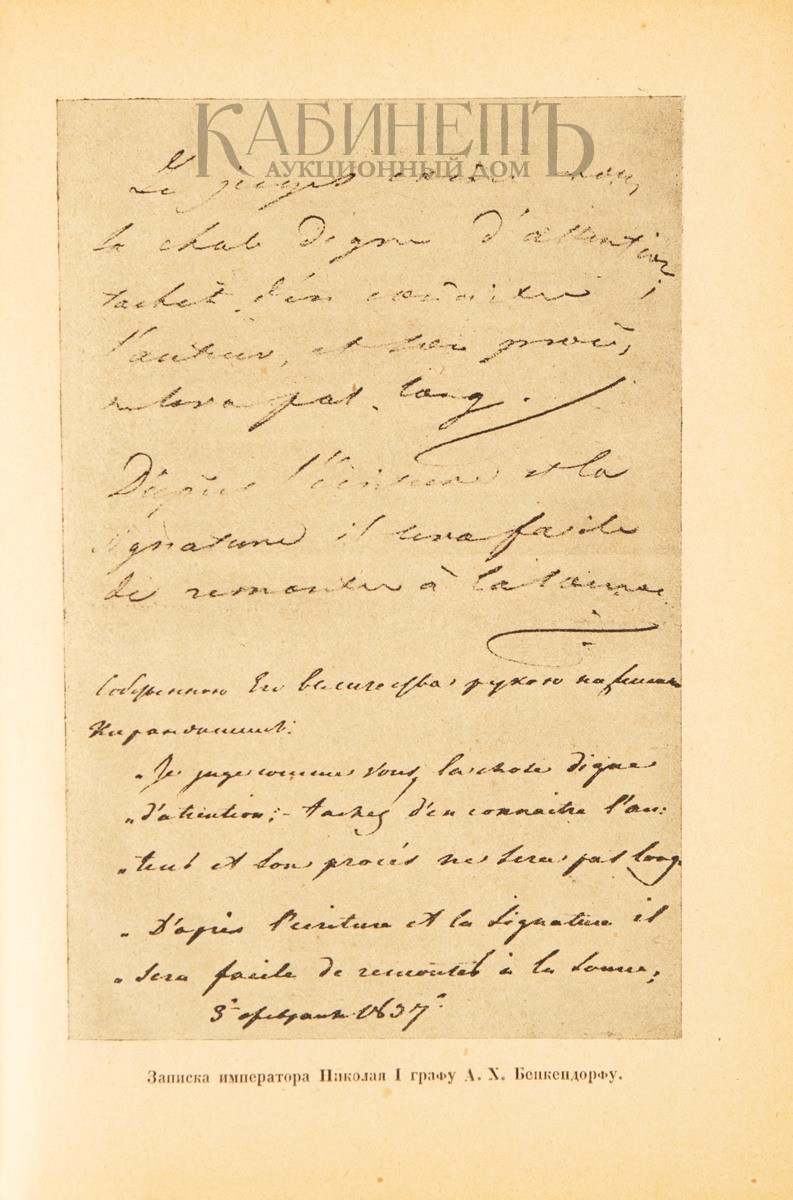 КАБИНЕТЪ
АУКЦИОННЫЙ ДОМ
Je juge comme vous,
la chose digne d'attention;
tachez d'en connaitre
l'auteur, et son procès
ne sera pas long.
D'après l'écriture et la
signature il sera facile
de remonter à la source
Собственною Его Величества рукою написано
Карандашемъ:
„Je juge comme vous, la chose digne
„d'attention; - tachez d'en connaitre l'au:
„teur et son procès ne sera pas long.
„D'après l'ecriture et la signature il
„sera facile de remonter à la source,
3 февраля 1837
Записка императора Николая I графу А. Х. Бенкендорфу.